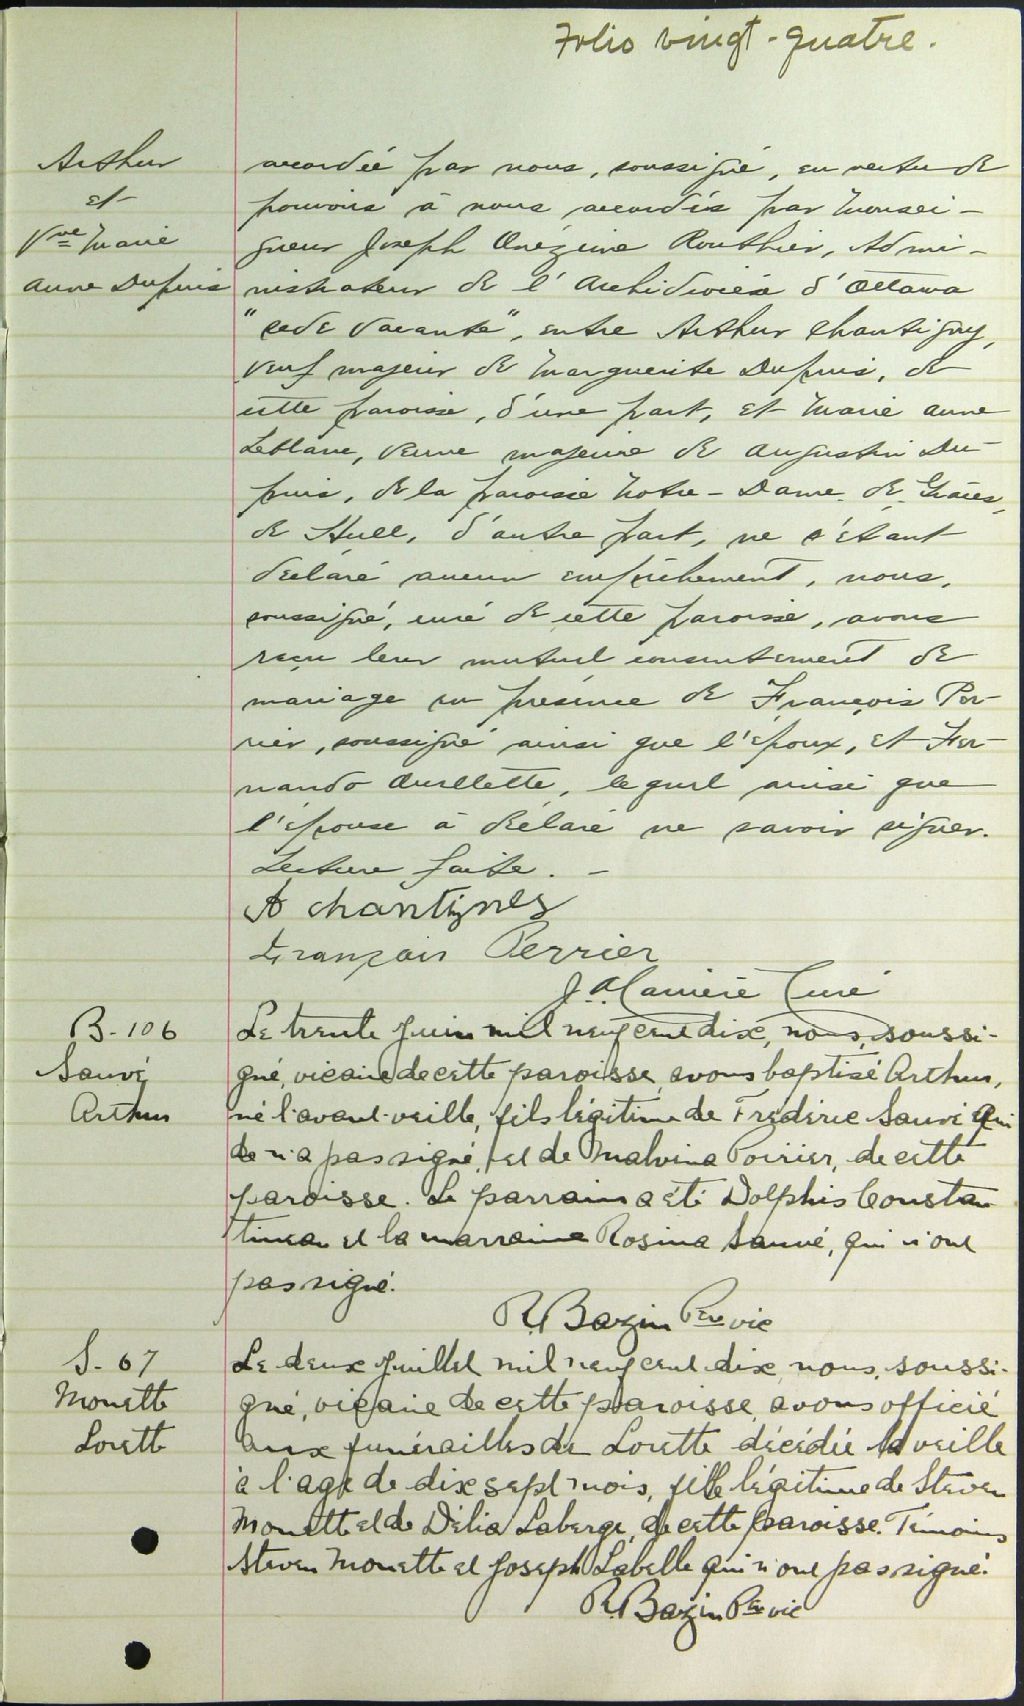 Folio vingt-quatre.
Arthur
et
Vve Marie
Anne Dupuis
accordée par nous, soussigné, en vertu de
pouvoirs à nous accordés par Monsei-
gneur Joseph Onézime Routhier, Admi-
nistrateur de l'Archidiocèse d'Ottawa
"sede vacante", entre Arthur Chantigny,
veuf majeur de Marguerite Dupuis, de
cette paroisse, d'une part, et Marie Anne
Leblanc, veuve majeure de Augustin Du-
puis, de la paroisse Notre-Dame de Grâces,
de Hull, d'autre part, ne s'étant
déclaré aucun empêchement, nous,
soussigné, curé de cette paroisse, avons
reçu leur mutuel consentement de
mariage en présence de François Per-
rier, soussigné ainsi que l'époux, et Fer-
nando Ouellette, lequel ainsi que
l'épouse à déclaré ne savoir signer.
Lecture faite. -
A chantigney
François Perrier
J. A. Carrière Curé
B-106
Sauvé
Arthur
Le trente juin mil neuf cent dix, nous, soussi-
gné, vicaire de cette paroisse avons baptisé Arthur,
né l'avant-veille, fils légitime de Frédéric Sauvé qui
de n'a pas signé, et de Malvina Poirier, de cette
paroisse. Le parrain a été Dolphis Constan
tineau et la marraine Rosina Sauvé, qui n'ont
pas signé.
R. Bazin Ptre vic
S-67
Monette
Lorette
Le deux juillet mil neuf cent dix nous, soussi-
gné, vicaire de cette paroisse avons officié
aux funérailles de Lorette décédée la veille
à l'age de dix sept mois, fille légitime de Steven
Monette et de Délia Laberge, de cette paroisse. Témoins
Steven Monette et Joseph Labelle qui n'ont pas signé.
R. Bazin Ptre vic